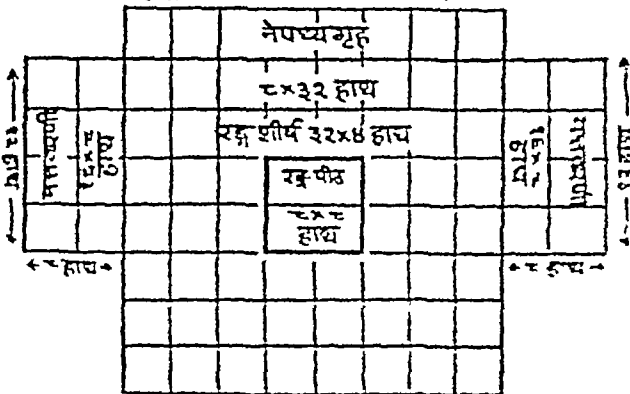 नेपथ्यगृह
८×३२ हाथ
रङ्ग शीर्ष ३२×४ हाथ
रङ्ग-पीठ
८×८
हाथ
मत्तवारणी
१६×८
हाथ
१६×८
हाथ
मत्तवारणी
८ हाथ
८ हाथ